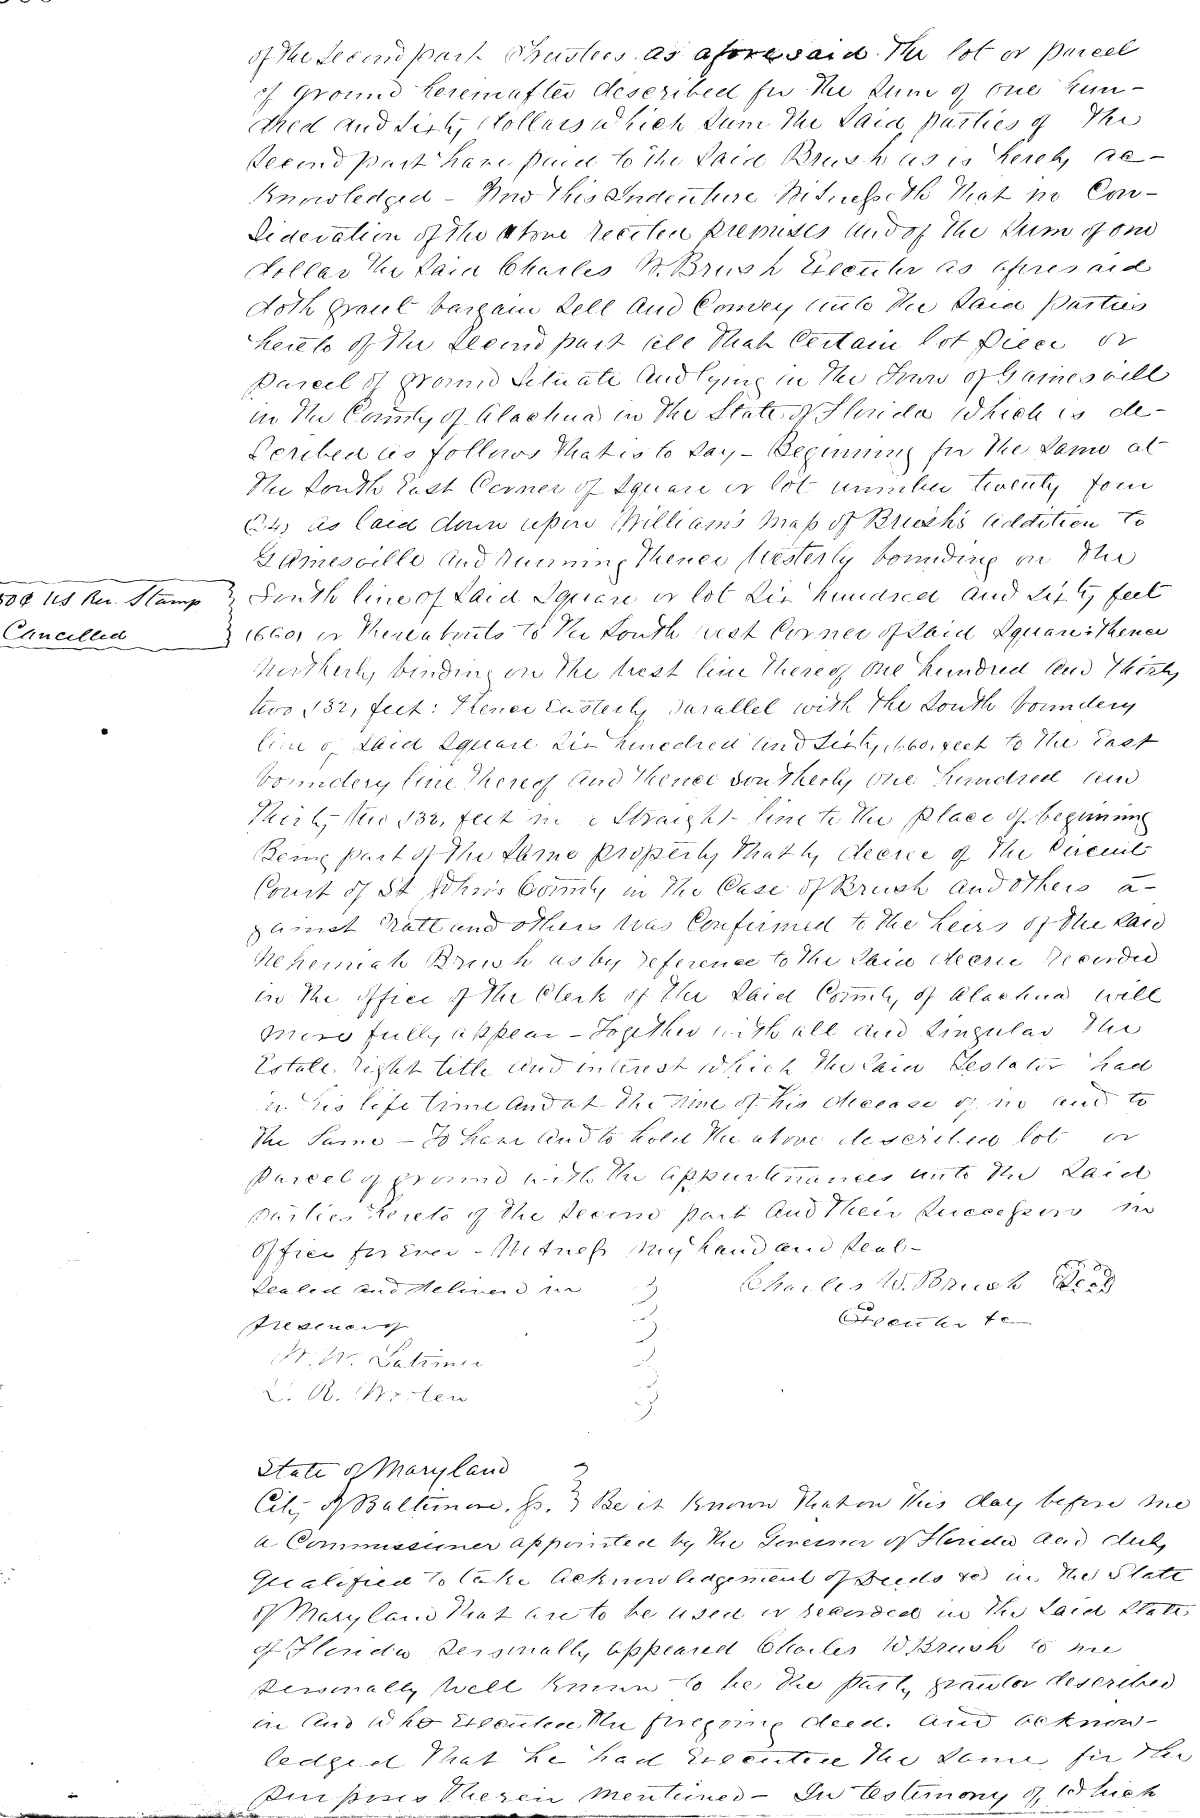 of the Second part Trustees as aforesaid the lot or parcel
of ground hereinafter described for the Sum of one hun-
dred and Sixty dollars which Sum the Said parties of the
Second part have paid to the Said Brush as is hereby ac-
knowledged - Now this Indenture Witnesseth that in Con-
sideration of the above recited premises and of the Sum of one
dollar the Said Charles W. Brush Executor as aforesaid
doth grant bargain Sell and Convey unto the Said parties
hereto of the Second part all that Certain lot piece or
parcel of ground Situate and lying in the Town of Gainesvill
in the County of Alachua in the State of Florida which is de-
scribed as follows that is to say - Beginning for the Same at
the South East Corner of Square or lot number twenty four
(24) as laid down upon William's Map of Brush's addition to
Gainesville and running thence Westerly bounding on the
South line of Said Square or lot Six hundred and Sixty feet
50¢ US Rev. Stamp
Cancelled
(660) or thereabouts to the South west Corner of Said Square: thence
Northerly binding on the West line thereof one hundred and thirty
two (132) feet: thence Easterly parallel with the South boundery
line of Said Square Six hundred and Sixty (660) feet to the East
boundery line thereof and thence Southerly one hundred and
thirty two (132) feet in a Straight line to the place of beginning
Being part of the Same property that by decree of the Circuit
Court of St John's County in the Case of Brush and others a-
gainst and others was Confirmed to the heirs of the Said
Nehemiah Brush as by reference to the Said decree recorded
in the office of the Clerk of the Said County of Alachua will
more fully appear - Together with all and Singular the
Estate right title and interest which the Said Testator had
in his life time and at the time of his decease of in and to
the Same - To have and to hold the above described lot or
parcel of ground with the appurtenances unto the Said
parties hereto of the Second part and their Successors in
office for Ever - Witness my hand and Seal -
Sealed and delivered in Charles W. Brush Seal
presence of Executor &c
W. W. Latimer
R.
State of Maryland
City of Baltimore. Ss. Be it Known that on this day before me
a Commissioner appointed by the Governor of Florida and duly
qualified to take acknowledgement of Deeds &c in the State
of Maryland that are to be used or recorded in the Said State
of Florida personally appeared Charles W Brush to me
personally well known to be the party grantor described
in and who Executed the foregoing deed. and acknow-
ledged that he had Executed the Same for the
purposes therein mentioned - In testimony of which